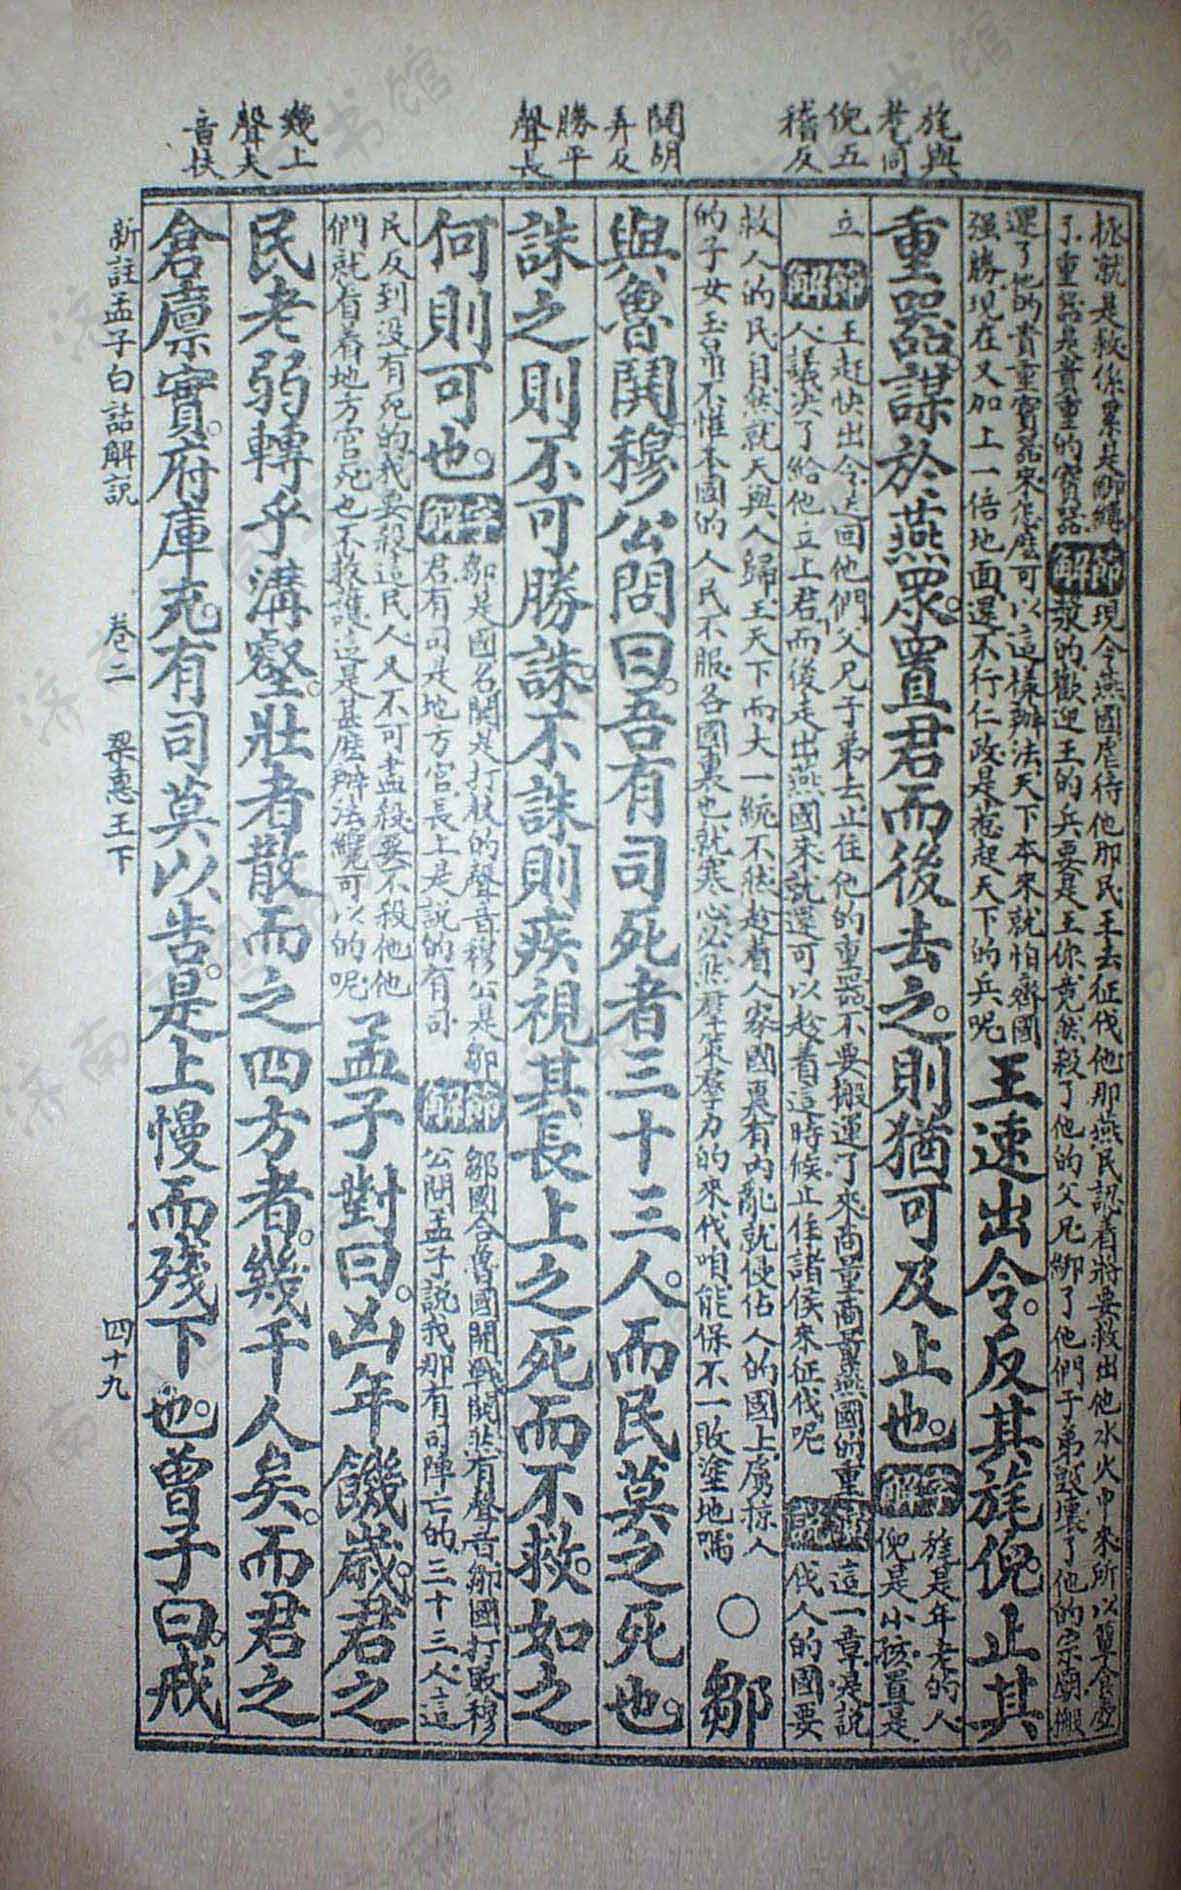 旄與
耄同
倪五
稽反
鬨胡
弄反
勝平
聲長
幾上
聲夫
音扶
拯就是救係累是綁縛
了重器是貴重的寶器
節解
現今燕國虐待他那民王去征伐他那燕民認着將要救出他水火中來所以簞食壺
漿的歡迎王的兵要是王你竟然殺了他的父兄綁了他們子弟毀壞了他的宗廟搬
運了他的貴重寶器來怎麼可以這樣辦法天下本來就怕齊國
强勝現在又加上一倍地面還不行仁政是惹起天下的兵呢
王速出令。反其旄倪。止其
重器。謀於燕眾。置君而後去之。則猶可及止也。
節解
旄是年老的人
倪是小孩置是
立
節解
王赶快出令送回他們父兄子弟去止住他的重器不要搬運了來商量商量燕國的重
人議決了給他立上君而後走出燕國來就還可以趁着這時候止住諸侯來征伐呢
這一章是說
伐人的國要
救人的民自然就天與人歸王天下而大一統不然趁着人家國裏有內亂就侵佔人的國土虜掠人
的子女玉帛不惟本國的人民不服各國裏也就寒心必然羣策羣力的來伐咱能保不一敗塗地嗎
○鄒
與魯鬨。穆公問曰。吾有司死者三十三人。而民莫之死也。
誅之則不可勝誅。不誅則疾視其長上之死而不救。如之
何則可也。
鄒是國名鬨是打杖的聲音穆公是鄒
君有司是地方官長上是說的有司
節解
鄒國合魯國開戰鬨然有聲音鄒國打敗穆
公問孟子說我那有司陣亡的三十三人這
民反到沒有死的我要殺這民人又不可盡殺要不殺他他
們就看着地方官死也不救護這是甚麼辦法纔可以的呢
孟子對曰。凶年饑歲。君之
民老弱轉乎溝壑。壯者散而之四方者。幾千人矣。而君之
倉廩實。府庫充。有司莫以告。是上慢而殘下也。曾子曰。戒
新註孟子白話解説 卷二 梁惠王下 四十九